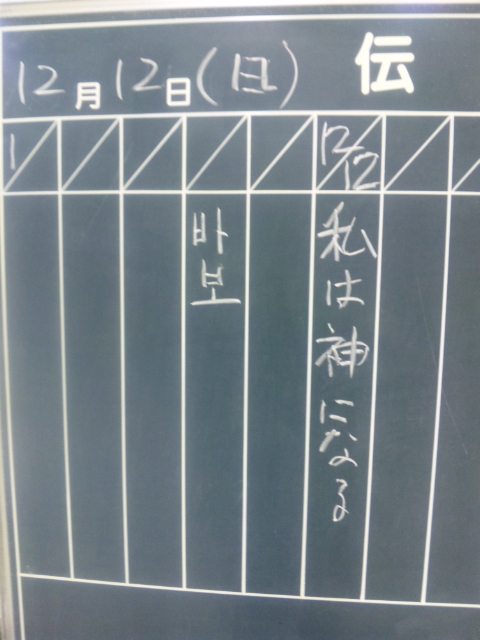 12月12日(日)
伝
12/12
私は神になる
바보
1/